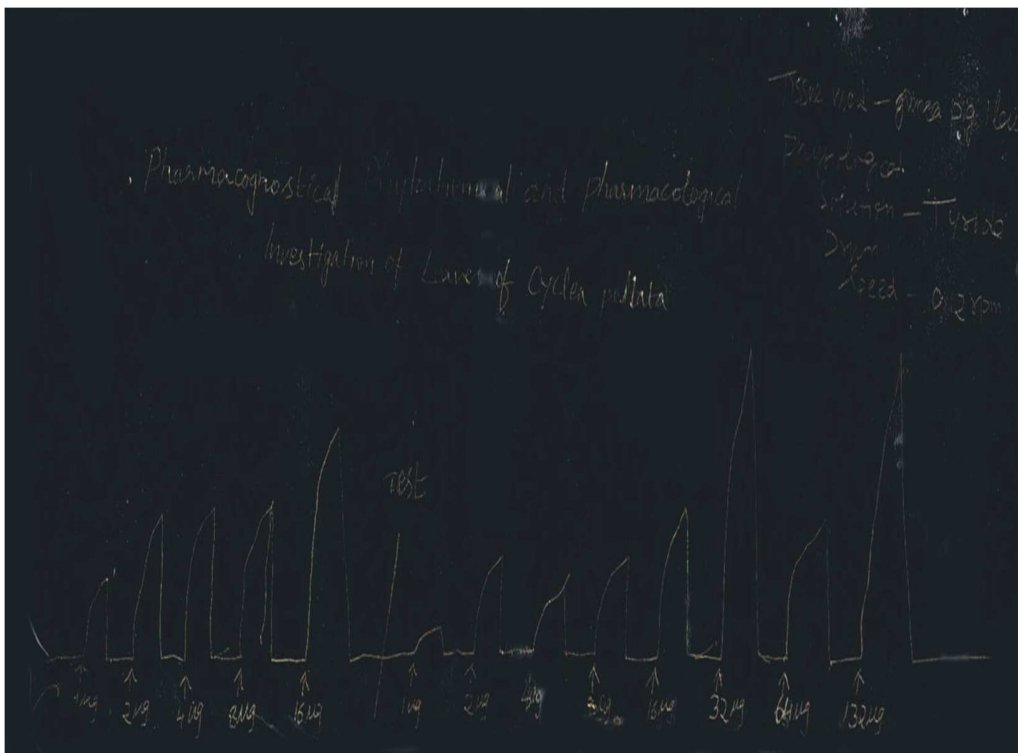 Tissue used - guinea pig
Physiological
Solution - Tyrode
Drum
Speed - 0.2 rpm
Pharmacognostical Phytochemical and pharmacological
Investigation of Leaves of Cyclea peltata
Test
1µg 2µg 4µg 8µg 16µg 1µg 2µg 4µg 16µg 32µg 64µg 132µg